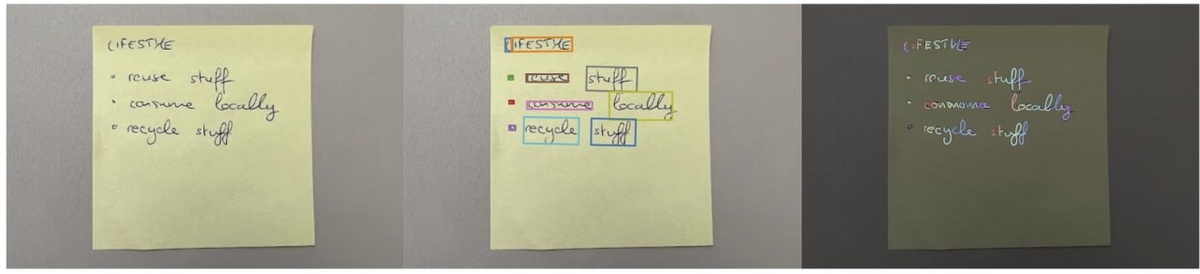 LIFESTYLE
• reuse stuff
• consume locally
• recycle stuff
LIFESTYLE
reuse stuff
consume locally
recycle stuff
LIFESTYLE
• reuse stuff
• locally
• recycle stuff